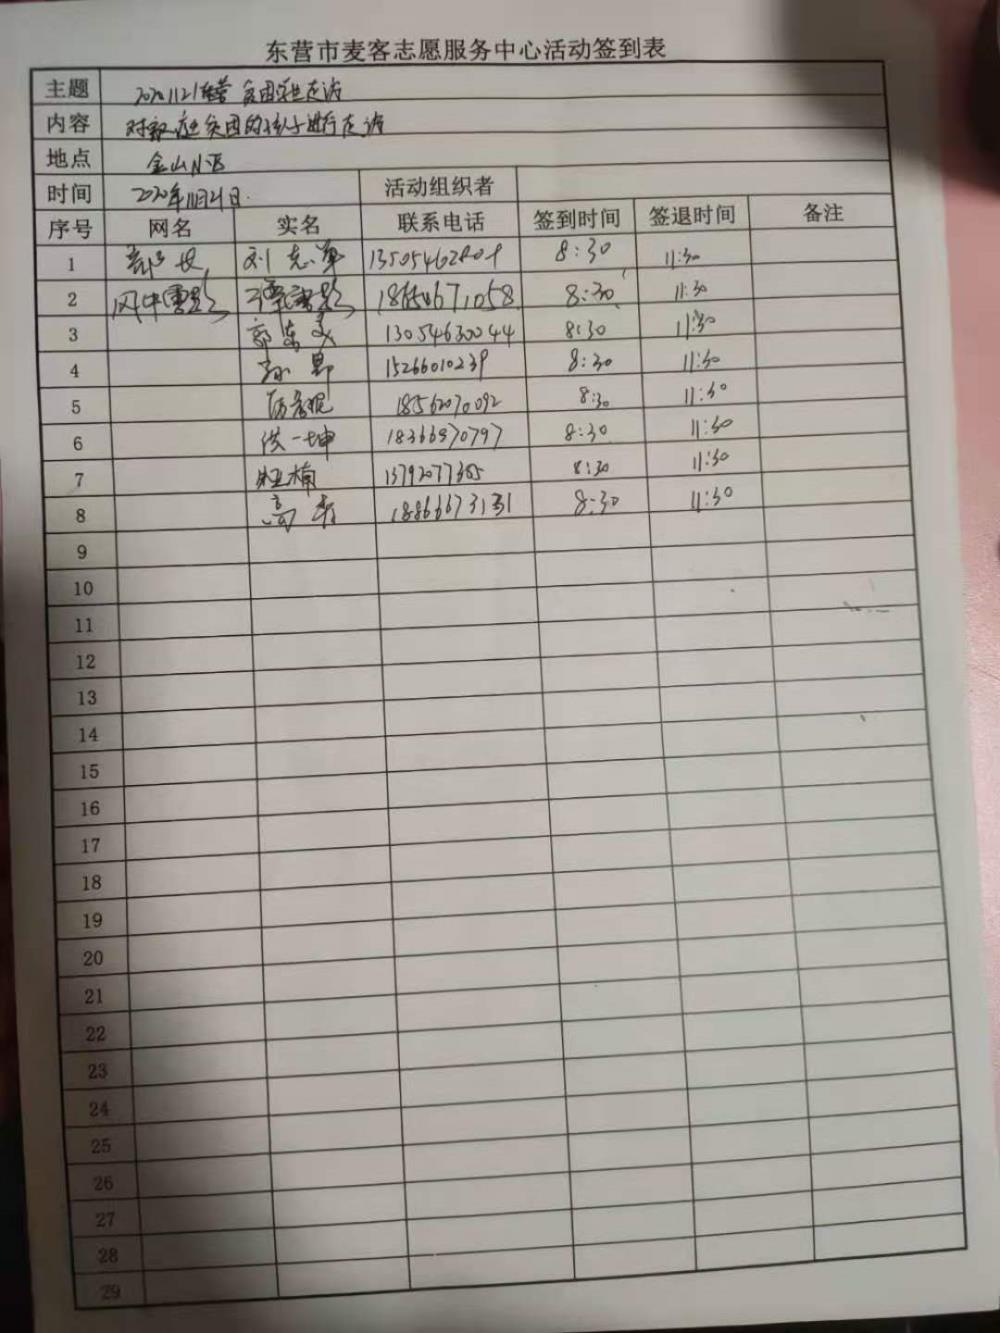 东营市麦客志愿服务中心活动签到表
主题 20201121东营贫困学生走访
内容 对家庭贫困的孩子进行走访
地点 金山小区
时间 2020年11月21日. 活动组织者
序号 网名 实名 联系电话 签到时间 签退时间 备注
1 部长 刘志军 8:30 11:30
2 风中雪影 18654671058 8:30 11:30
3 郭东美 13054630044 8:30 11:30
4 孙昂 15266010239 8:30 11:30
5 18562070092 8:30 11:30
6 洪一坤 18366970797 8:30 11:30
7 13792077385 8:30 11:30
8 高 18866673131 8:30 11:30
9
10
11
12
13
14
15
16
17
18
19
20
21
22
23
24
25
26
27
28
29